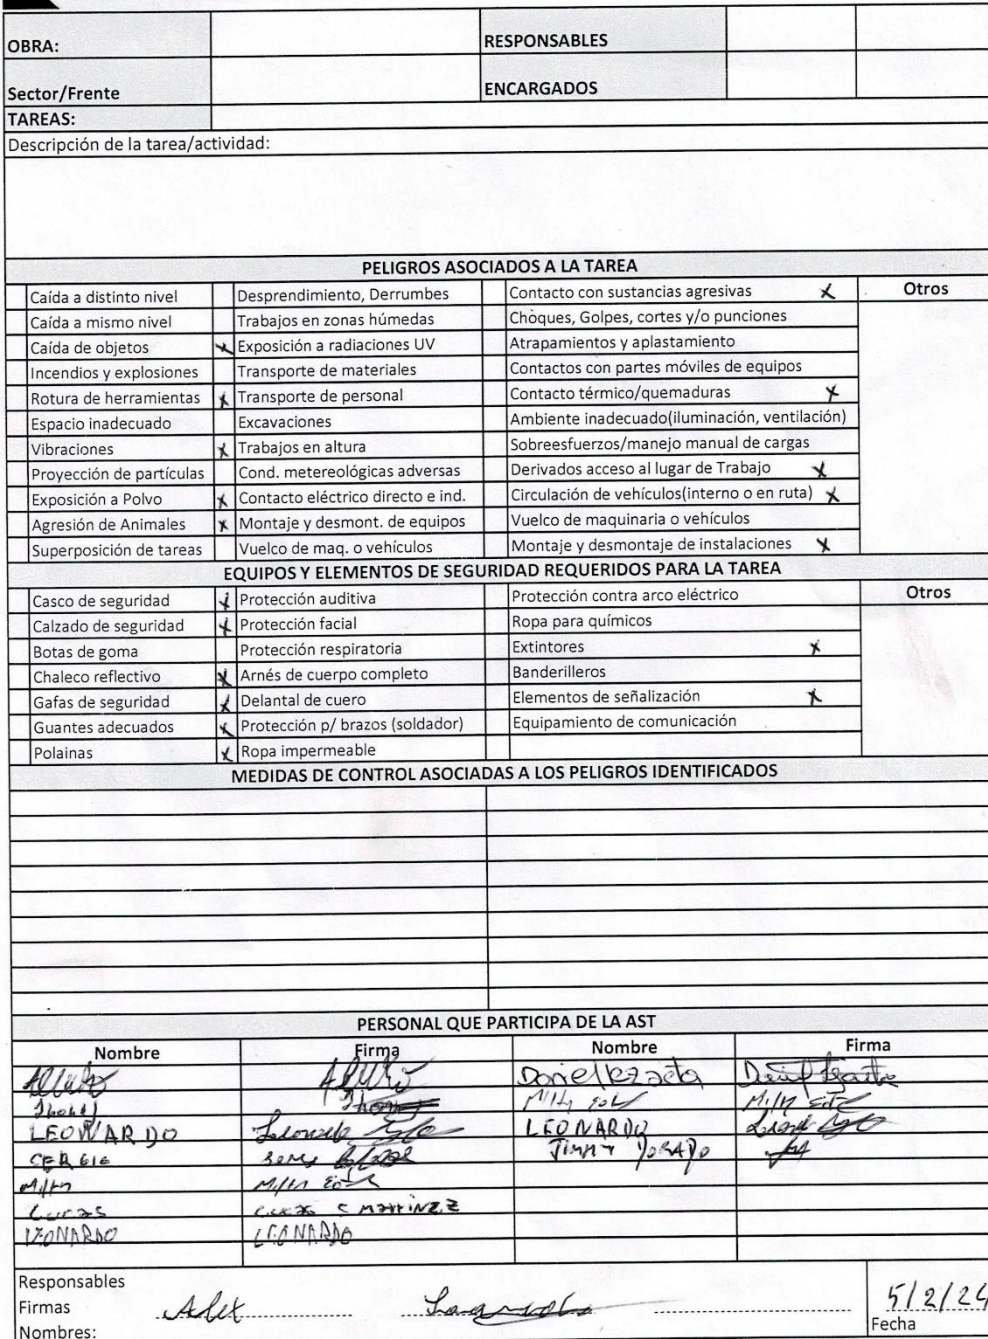 OBRA: RESPONSABLES
Sector/Frente ENCARGADOS
TAREAS:
Descripción de la tarea/actividad:
PELIGROS ASOCIADOS A LA TAREA
Caída a distinto nivel Desprendimiento, Derrumbes Contacto con sustancias agresivas X Otros
Caída a mismo nivel Trabajos en zonas húmedas Choques, Golpes, cortes y/o punciones
Caída de objetos X Exposición a radiaciones UV Atrapamientos y aplastamiento
Incendios y explosiones Transporte de materiales Contactos con partes móviles de equipos
Rotura de herramientas X Transporte de personal Contacto térmico/quemaduras X
Espacio inadecuado Excavaciones Ambiente inadecuado(iluminación, ventilación)
Vibraciones X Trabajos en altura Sobreesfuerzos/manejo manual de cargas
Proyección de partículas Cond. metereológicas adversas Derivados acceso al lugar de Trabajo X
Exposición a Polvo X Contacto eléctrico directo e ind. Circulación de vehículos(interno o en ruta) X
Agresión de Animales X Montaje y desmont. de equipos Vuelco de maquinaria o vehículos
Superposición de tareas Vuelco de maq. o vehículos Montaje y desmontaje de instalaciones X
EQUIPOS Y ELEMENTOS DE SEGURIDAD REQUERIDOS PARA LA TAREA
Casco de seguridad X Protección auditiva Protección contra arco eléctrico Otros
Calzado de seguridad X Protección facial Ropa para químicos
Botas de goma Protección respiratoria Extintores X
Chaleco reflectivo X Arnés de cuerpo completo Banderilleros
Gafas de seguridad X Delantal de cuero Elementos de señalización X
Guantes adecuados X Protección p/ brazos (soldador) Equipamiento de comunicación
Polainas X Ropa impermeable
MEDIDAS DE CONTROL ASOCIADAS A LOS PELIGROS IDENTIFICADOS
PERSONAL QUE PARTICIPA DE LA AST
Nombre Firma Nombre Firma
LEONARDO LEONARDO
CERGIO
LUCAS
LEONARDO LEONARDO
Responsables
Firmas
Nombres:
5/2/24
Fecha